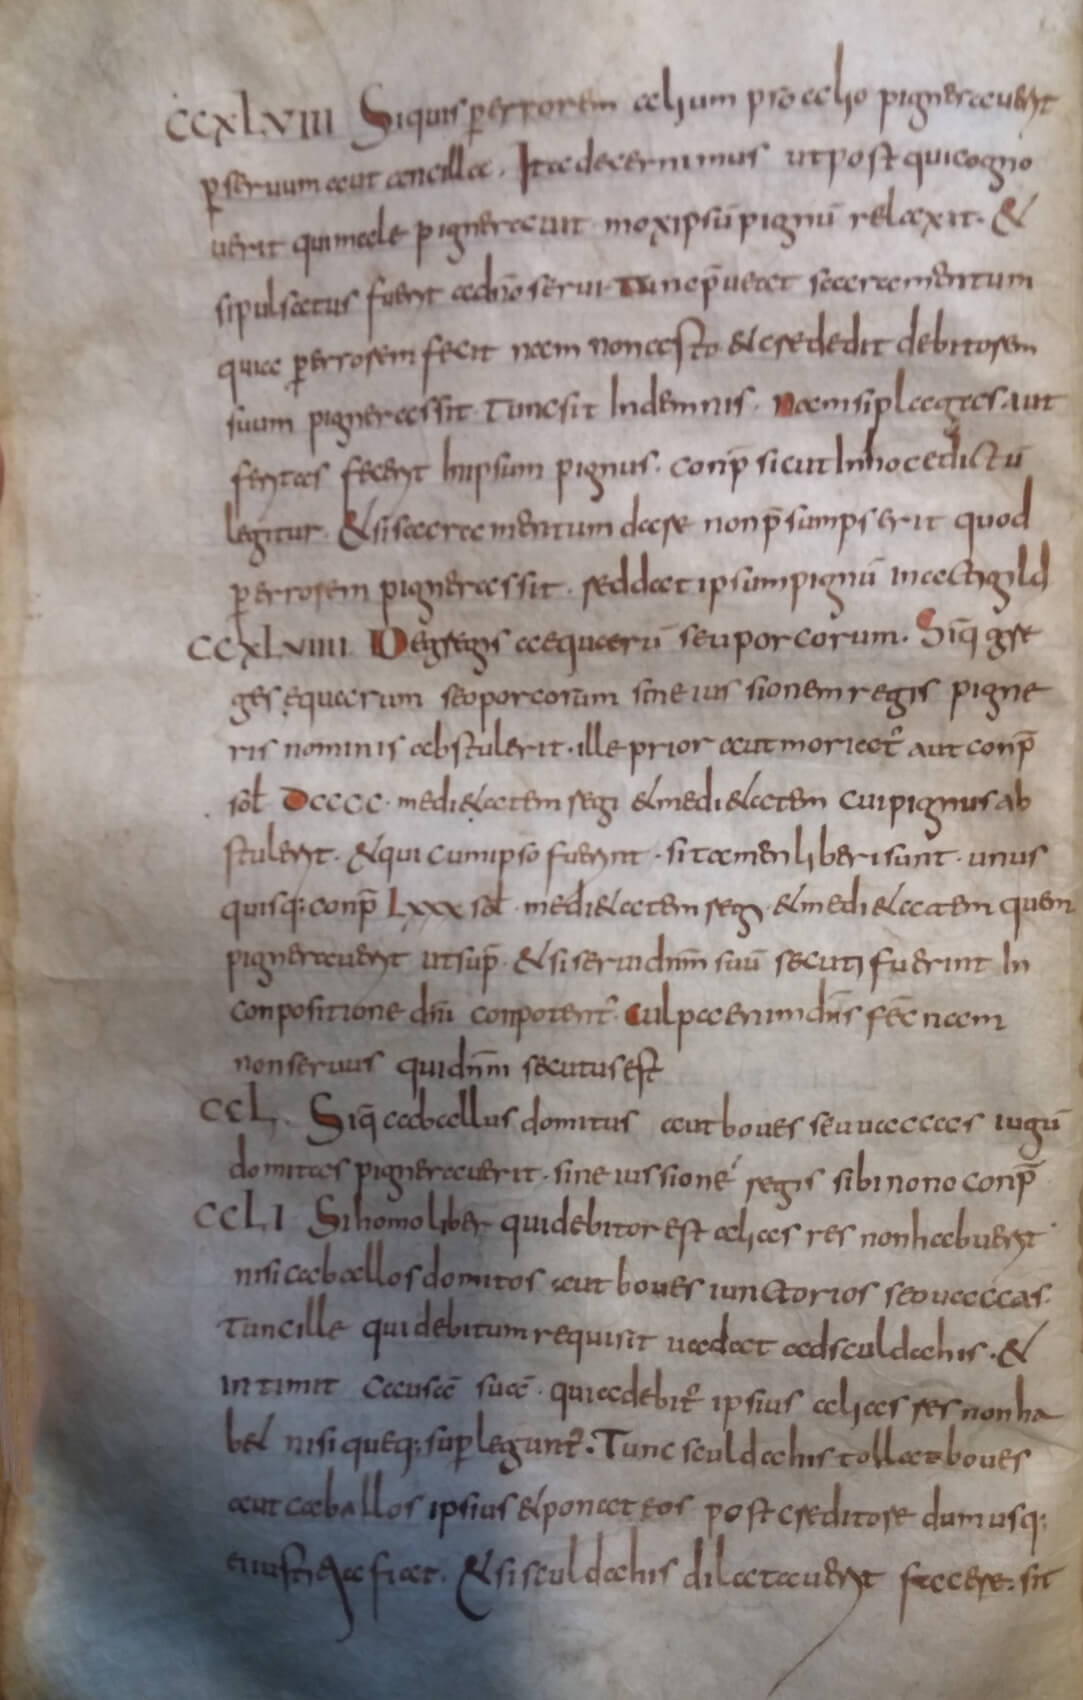 CCXLVIII Siquis perrorem alium pro alio pigneraueryt
pseruum aut ancilla. Ita decernimus ut post quicogno
uerit quimale pignerauit moxipsū pignū relaxit. &
sipulsatus fueryt addn̄o serui. Tunc p̄uetet sacramentum
quia perrorem fecit nam non asto & crededit debitorem
suum pignerassit. Tuncsit Indemnis. Nam siplagas. aut
ferytas feceryt Inipsum pignus. conp̄ sicut Inhoc edictū
legitur. & sisacramentum dare nonp̄sumpserit quod
perrorem pignerassit. reddat ipsumpignū inactigild
CCXLVIIII Degregis aequarū seu porcorum. Siq̄ gre
ges equarum seoporcorum sine iussionem regis pigne
ris nominis abstulerit. ille prior aut moriat᷑ aut conp̄
sol̄ Dcccc. medi&atem regi & medi&atem cuipignus ab
stuleryt. & qui cumipso fuerynt. si tamen liberisunt. unus
quisq; conp̄ LXXX sol̄. medi&atem reg & medi&atem quem
pigneraueryt utsup̄. & si serui dnm̄ suū secuti fuerint In
conpositione dn̄i conpotent᷑. Culpa enim dn̄s fec̄ nam
non seruus quidnm̄ secutus est
CCL. Siq̄ caballus domitus aut boues seu uaccas iugū
domitas pignerauerit. sine iussione regis sibi nono conp̄
CCLI Sihomo liber quidebitor est alias res nonhabueryt
nisi caballos domitos aut boues iunctorios seo uaccas.
Tuncille quidebitum requirit uadat adsculdahis. &
intimit causā suā. quia debit᷑ ipsius alias res nonha
b& nisi queq; superlegunt᷑. Tunc sculdahis tollat boues
aut caballos ipsius & ponat eos post creditore dum usq;
eiiustitia fiat. & si sculdahis dilataueryt facere. sit